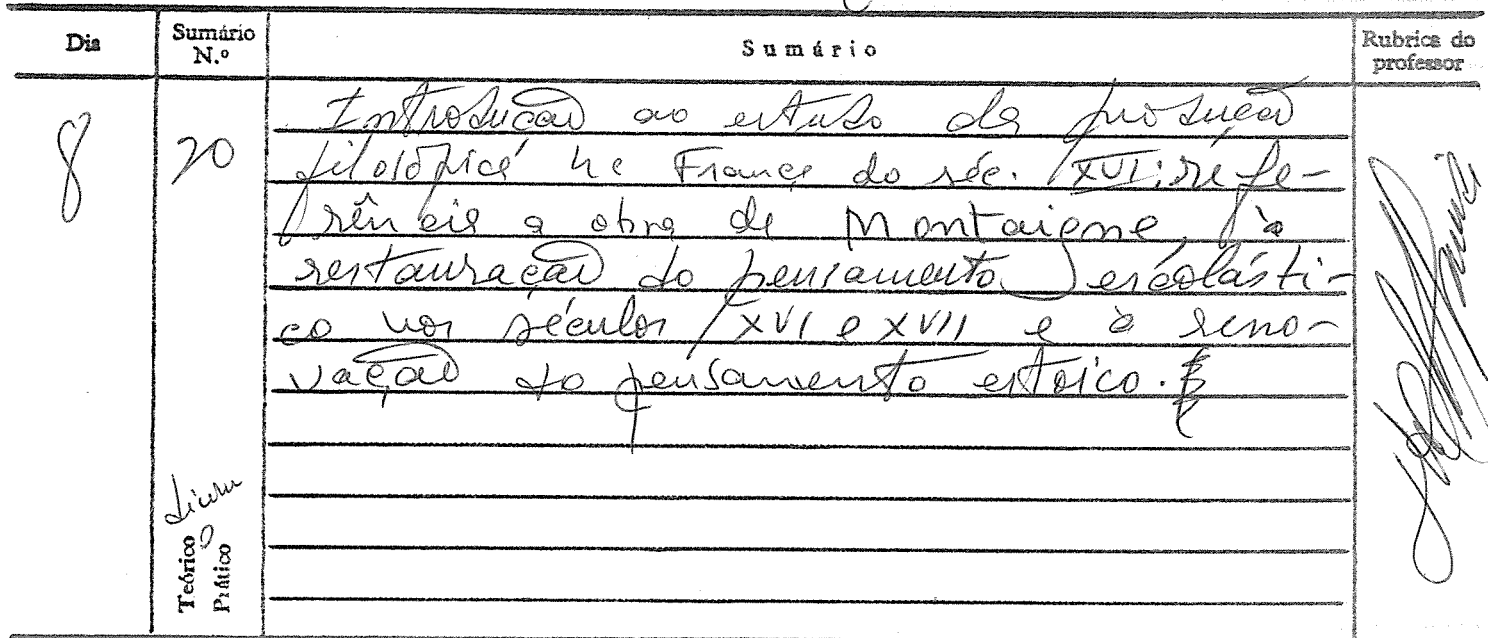 Dia Sumário N.º Sumário Rubrica do professor
8 20 Introdução ao estudo da produção
filosófica na França do séc. XVI: refe-
rência a obra de Montaigne, à
restauração do pensamento escolásti-
co nos séculos XVI e XVII e à reno-
vação do pensamento estoico.
Teórico
Prático